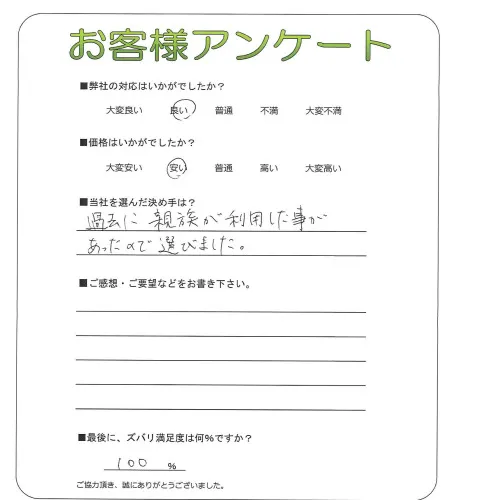 お客様アンケート
■弊社の対応はいかがでしたか？
大変良い 良い 普通 不満 大変不満
■価格はいかがでしたか？
大変安い 安い 普通 高い 大変高い
■当社を選んだ決め手は？
過去に親族が利用した事が
あったので選びました。
■ご感想・ご要望などをお書き下さい。
■最後に、ズバリ満足度は何%ですか？
100 %
ご協力頂き、誠にありがとうございました。